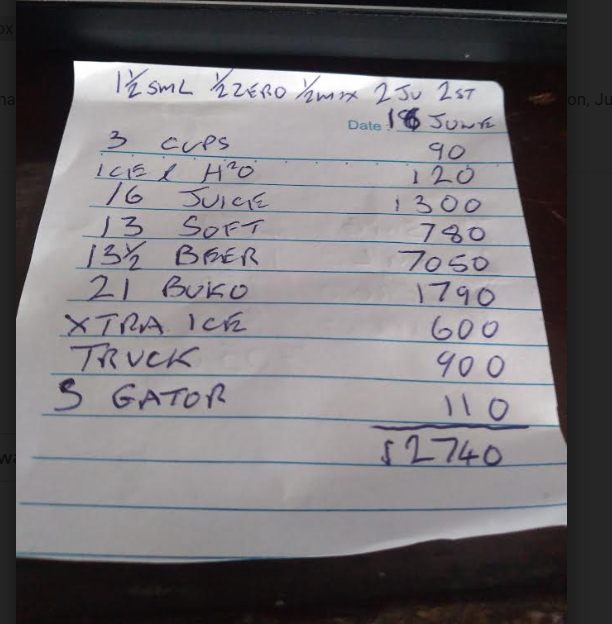 1½ SML ½ ZERO ½ MIX 2 JU 2 ST
Date 16 JUNE
3 CUPS 90
ICE & H²O 120
16 JUICE 1300
13 SOFT 780
13½ BEER 7050
21 BUKO 1790
XTRA ICE 600
TRUCK 900
3 GATOR 110
12740